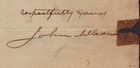 respectfully yours
John